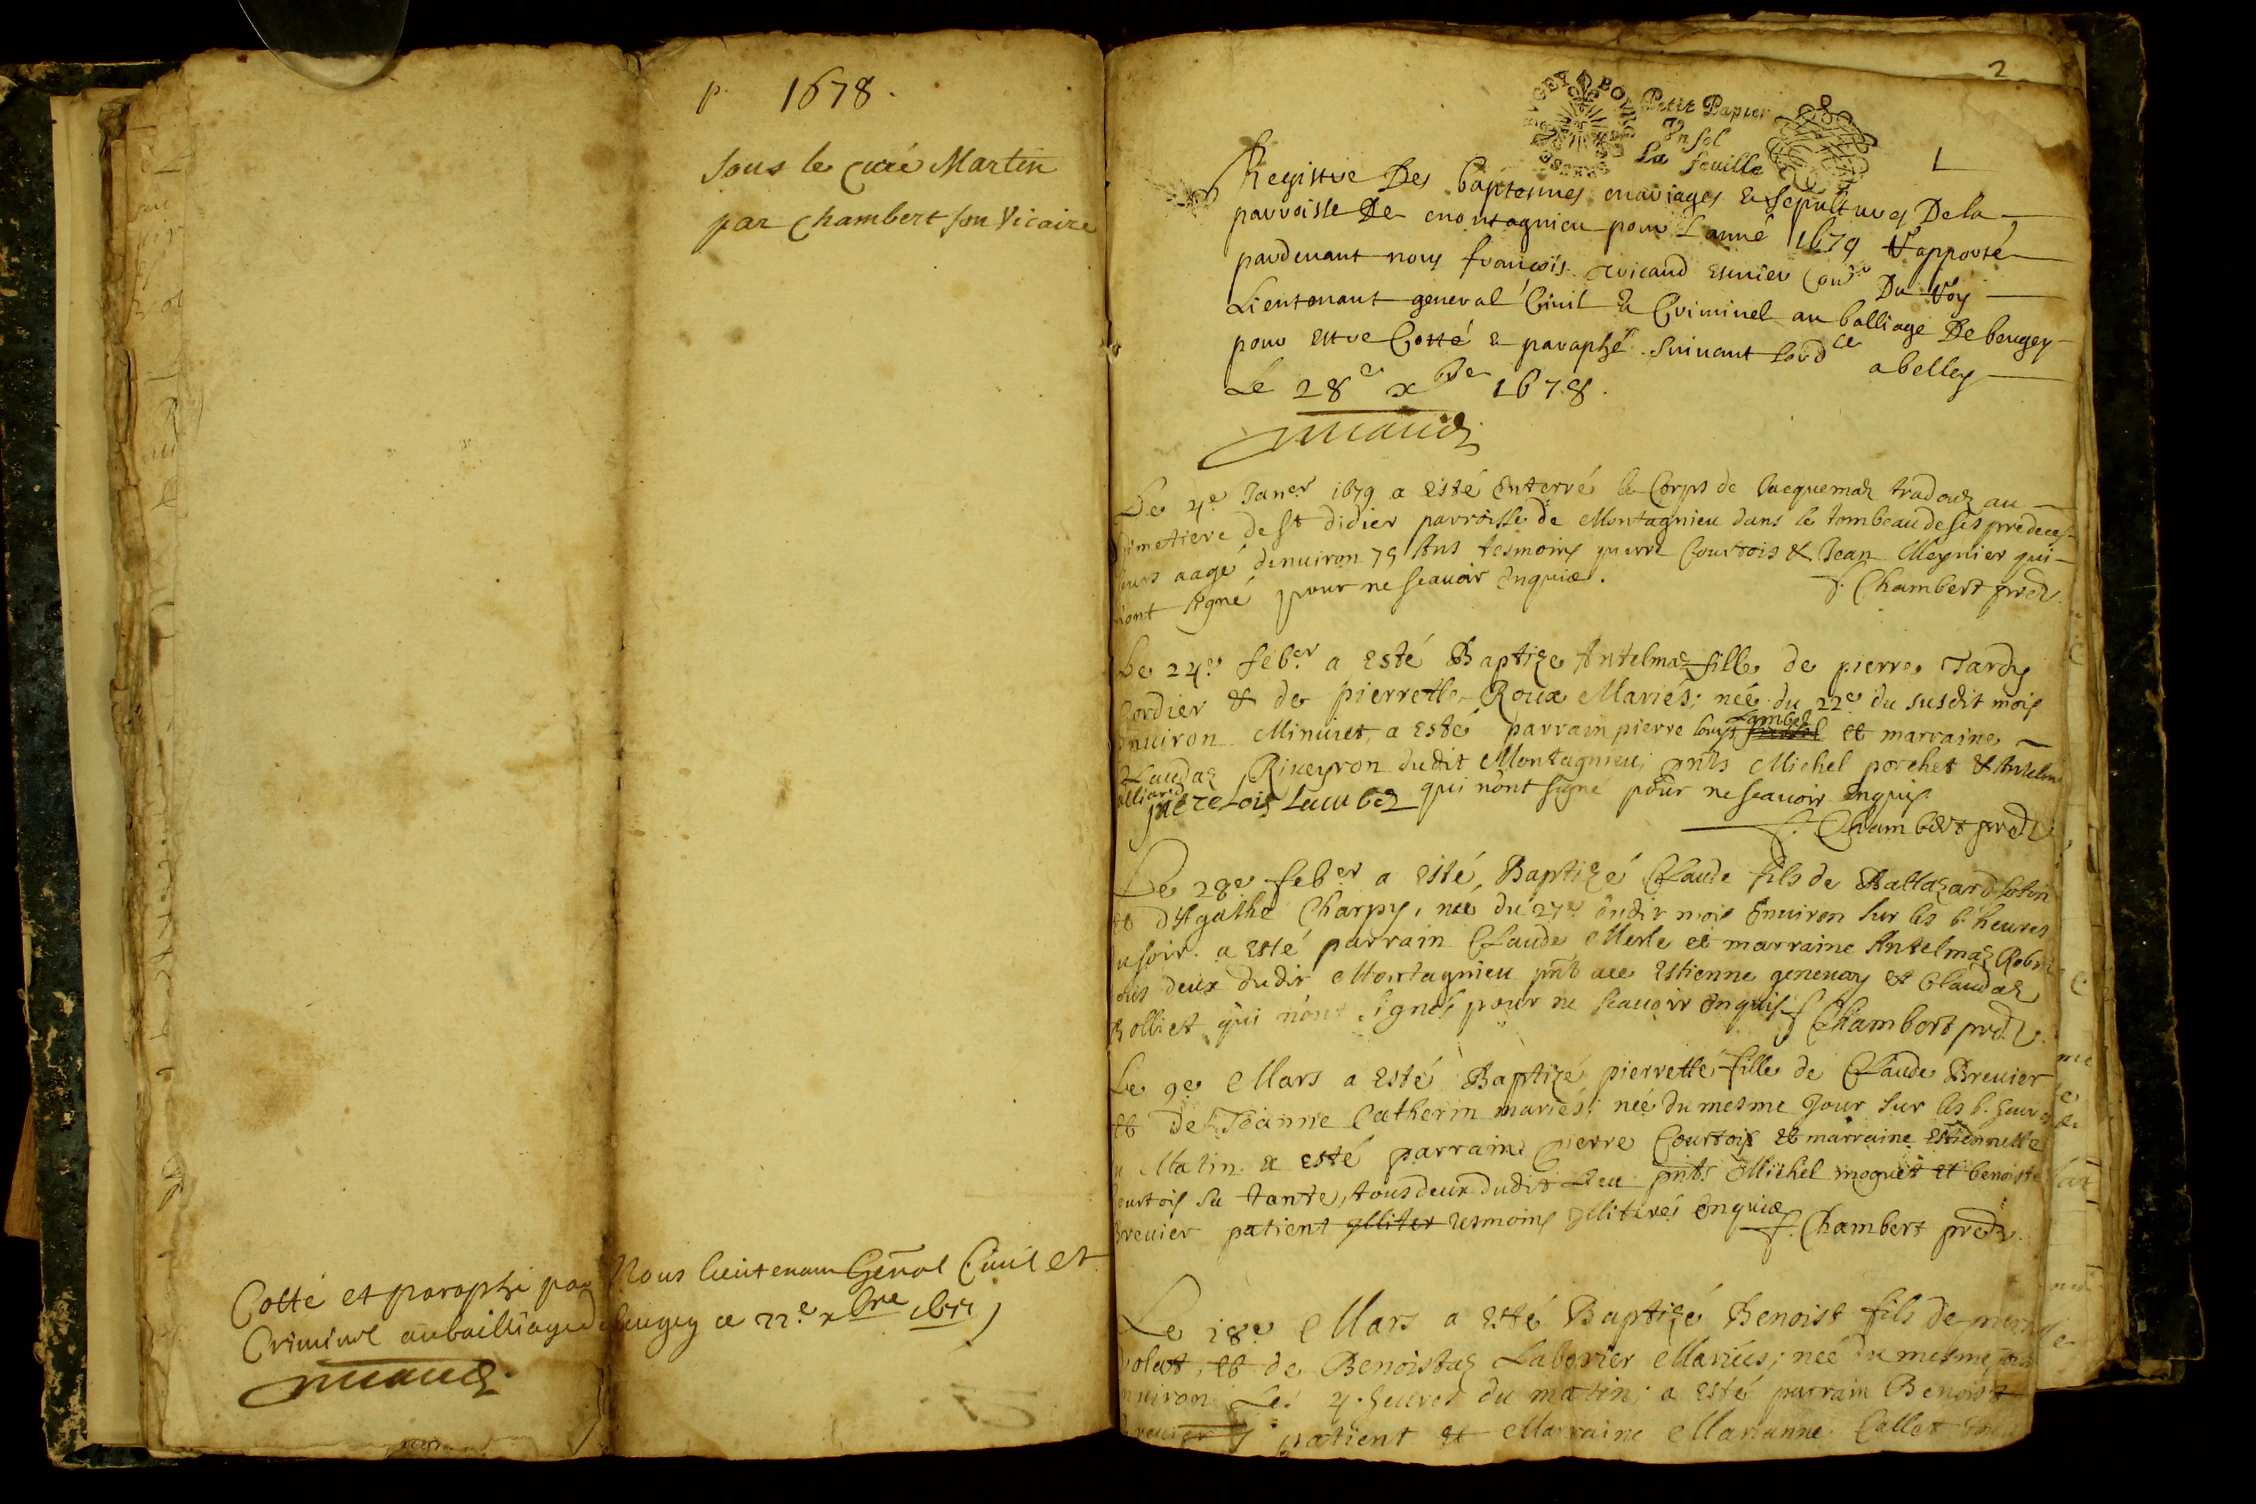 p. 1678.
sous le curé Martin
par Chambert son Vicaire
Cotté et paraphé par Nous lieutenant Gñal Ciuil et
Criminel au bailliage de beugey ce 22.e xbre
2
BOVRG
Petit Papier
Vn sol
La feuille
Registre Des baptesmes mariages & sepultures De la
parroisse De montagnieu pour Lanné 1679 Rapporté
pardeuant nous françois escuier Conr Du Roy
Lieutenant general Ciuil & Criminel au balliage De beugey
pour estre Cotté & paraphé suiuant Lordce abelley
Le 28e xbre 1678.
Le 4e Janer 1679 a esté enterré le Corps de Jacquemaz tradouz au
Cimetiere de St didier parroisse de Montagnieu dans le tombeau de ses predeces-
seurs aagé denuiron 75 Ans tesmoins pierre Courtois & Jean Meynier qui
n'ont signé pour ne scauoir enquis. f. Chambert pred.
Le 24e feber a esté Baptize Antelmaz fille de pierre Tardy
Cordier & de pierrette Roux Mariés; neé du 22e du susdit mois
enuiron Minuict, a esté parrain pierre louys Lambez et marraine
Claudaz Riueyron dudit Montagnieu pnts Michel porchet & Antelme
pierre Lois Lambez qui n'ont signé pour ne scauoir enquis
f. Chambert pred.
Le 28e feber a esté Baptizé Claude fils de Baltazard
et d'Agathe Charpy, neé du 27e dudit mois enuiron sur les 6. heures
du soir. a esté parrain Claude Merle et marraine Antelmaz
tous deux dudit Montagnieu pnt aue Estienne geneuay et Claudaz
Bolliet qui n'ont signés pour ne scauoir enquis f Chambert pred.
Le 9e Mars a esté Baptizé pierrette fille de Claude Breuier
et de Jeanne Catherin mariés; neé du mesme Jour sur les 6. heures
du Matin. a esté parrain pierre Courtois et marraine Estiennette
Courtois sa tante, tous deux dudit Lieu pnts Michel moguet et benoiste
Breuier patient tesmoins illiterés enquis f. Chambert pred.
Le 18e Mars a esté Baptizé Benoist fils de
et de Benoistaz Laborier Mariés; neé du mesme jour
enuiron Les 4. heures du matin; a esté parrain Benoist
Breuier patient et Marraine Marianne Collet